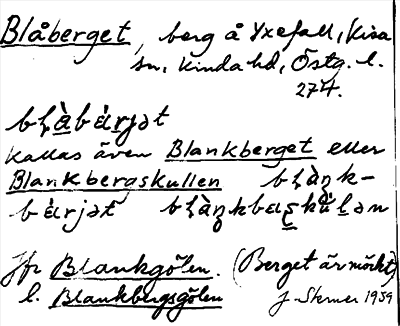 Blåberget, berg å Yxefall, Kisa
sn, Kinda hd, Östg. l.
274.
bḷàbæ̀rjət
Kallas även Blankberget eller
Blankbergskullen bḷàŋk-
bæ̀rjət
Jfr Blankgölen. (Berget är mörkt)
l. Blankbergsgölen J. Sterner 1939